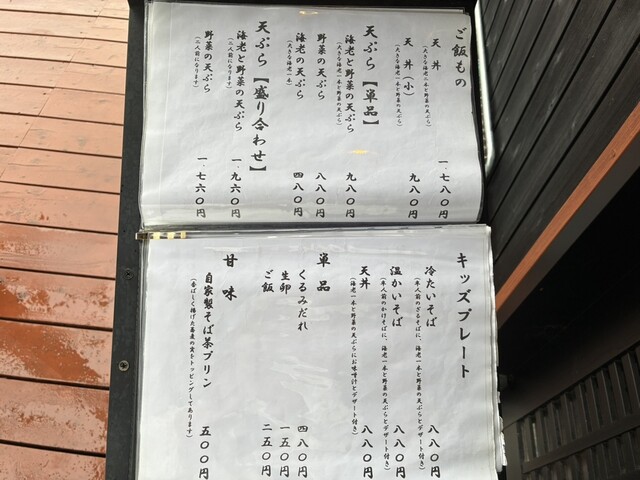 ご飯もの
天丼 一、七八〇円
(大きな海老二本と野菜の天ぷら)
天丼(小) 九八〇円
(大きな海老一本と野菜の天ぷら)
天ぷら【単品】
海老と野菜の天ぷら 九八〇円
(大きな海老一本と野菜の天ぷら)
野菜の天ぷら 八八〇円
海老の天ぷら 四八〇円
(大きな海老一本)
天ぷら【盛り合わせ】
海老と野菜の天ぷら 一、九六〇円
(二人前になります)
野菜の天ぷら 一、七六〇円
(二人前になります)
キッズプレート
冷たいそば 八八〇円
(半人前のざるそばに、海老一本と野菜の天ぷらとデザート付き)
温かいそば 八八〇円
(半人前のかけそばに、海老一本と野菜の天ぷらとデザート付き)
天丼 八八〇円
(海老一本と野菜の天ぷらにお味噌汁とデザート付き)
単品
くるみだれ 四八〇円
生卵 一五〇円
ご飯 二五〇円
甘味
自家製そば茶プリン 五〇〇円
(香ばしく揚げた蕎麦の実をトッピングしてあります)